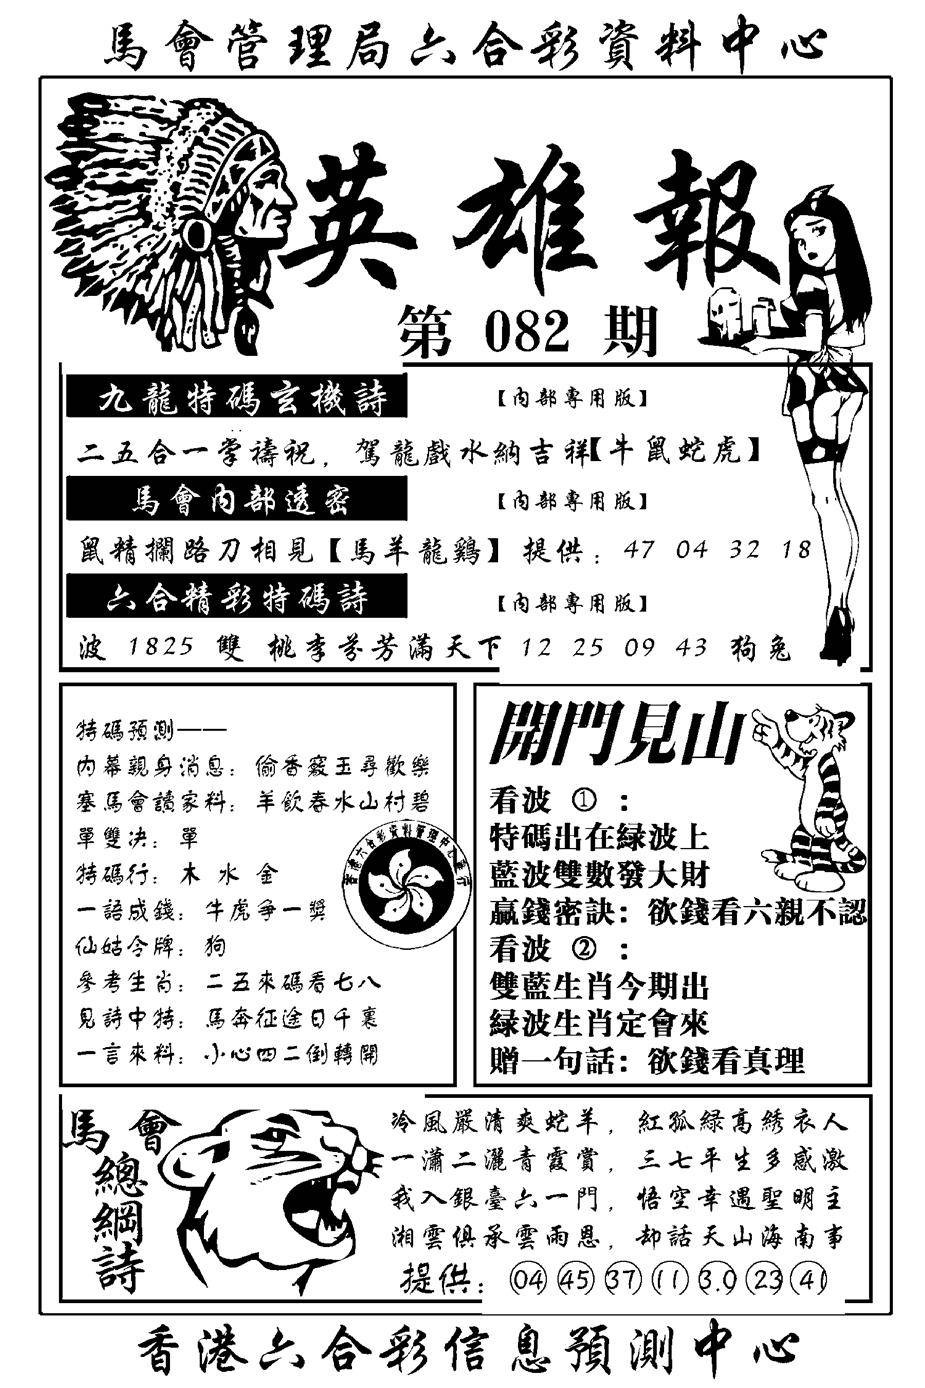 馬會管理局六合彩資料中心
英雄報
第 082 期
九龍特碼玄機詩 【內部專用版】
二五合一掌禱祝，駕龍戲水納吉祥【牛鼠蛇虎】
馬會內部透密 【內部專用版】
鼠精攔路刀相見【馬羊龍鷄】 提供：47 04 32 18
六合精彩特碼詩 【內部專用版】
波 1825 雙 桃李芬芳滿天下 12 25 09 43 狗兔
特碼預測——
內幕親身消息：偷香竊玉尋歡樂
塞馬會讀家料：羊飲春水山村碧
單雙决：單
特碼行：木 水 金
一語成錢：牛虎爭一獎
仙姑令牌：狗
參考生肖：二五來碼看七八
見詩中特：馬奔征途日千裏
一言來料：小心四二倒轉開
香港六合彩資料管理中心發行
開門見山
看波 ①：
特碼出在緑波上
藍波雙數發大財
贏錢密訣：欲錢看六親不認
看波 ②：
雙藍生肖今期出
緑波生肖定會來
贈一句話：欲錢看真理
馬會總綱詩
冷風嚴清爽蛇羊，紅孤緑高綉衣人
一瀟二灑青霞賞，三七平生多感激
我入銀臺六一門，悟空幸遇聖明主
湘雲俱承雲雨恩，却話天山海南事
提供：04 45 37 11 3.0 23 41
香港六合彩信息預測中心